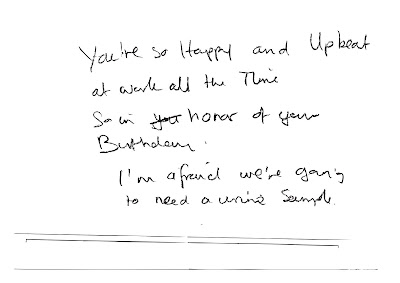 You're so Happy and Upbeat
at work all the Time
So in you honor of your
Birthday.
I'm afraid we're going
to need a urine Sample.